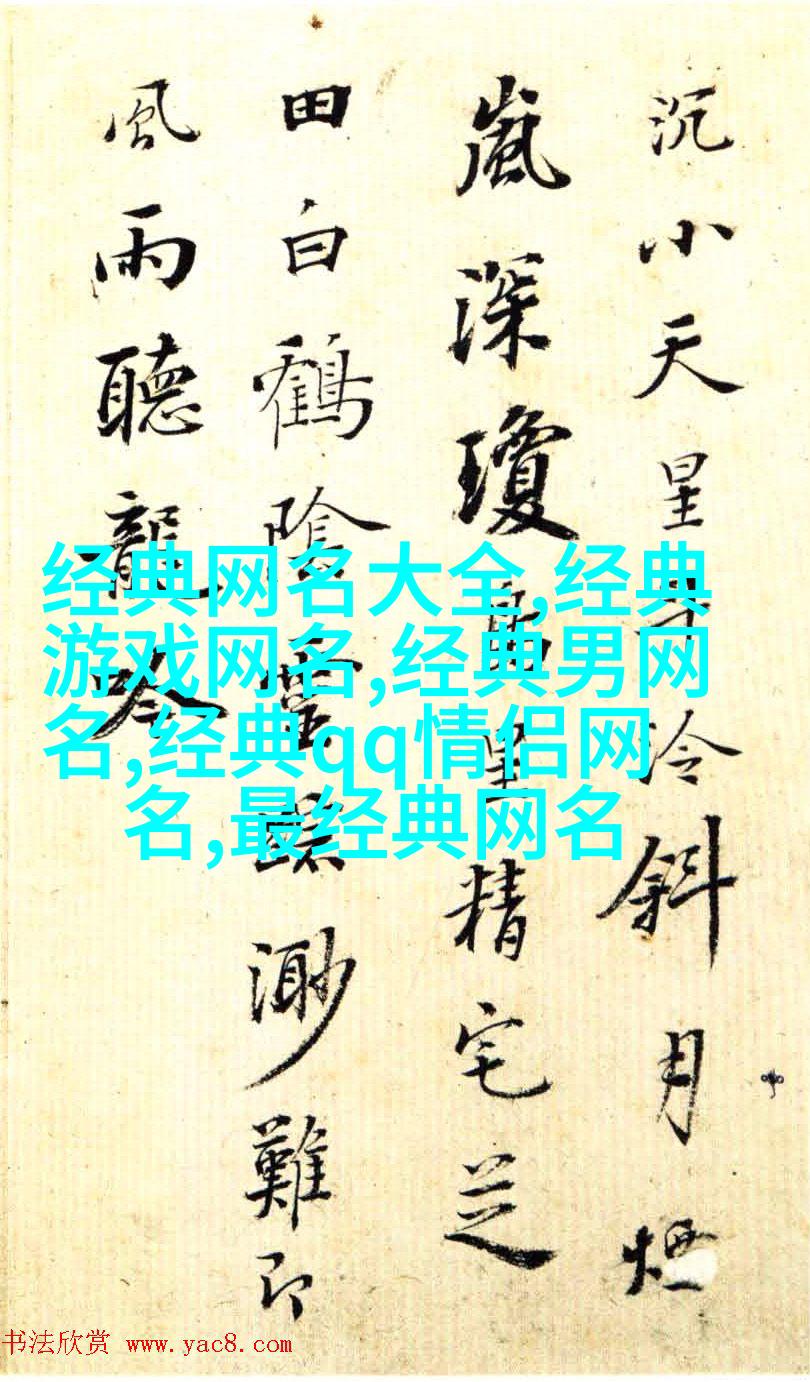 沉小天星斗冷斜月煙
嵐深瓊島星精宅芝
田白鶴陰靈蹤渺難即
風雨聽龍吟
经典网名大全,经典
游戏网名,经典男网
名,经典qq情侣网
名,最经典网名
书法欣赏 www.yac8.com